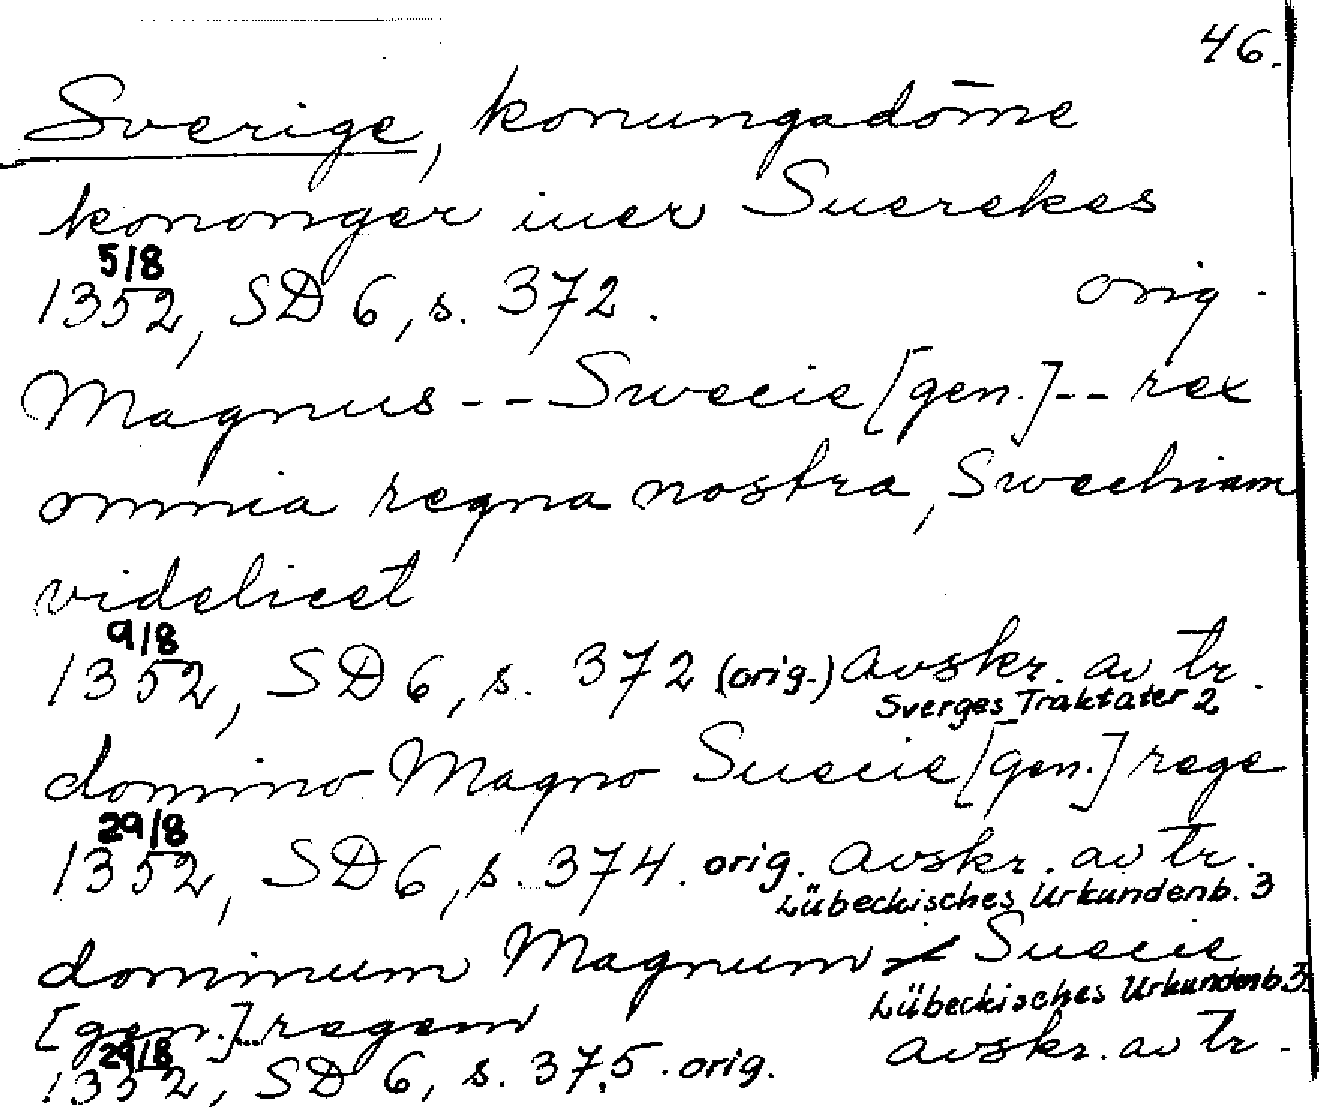 46.
Sverige, konungadöme
kononger iuer Suerekes
5/8
1352, SD 6, s. 372. orig.
Magnus -- Swecie [gen.] -- rex
omnia regna nostra, Swechiam
videlicet
9/8
1352, SD 6, s. 372 (orig.) avskr. av tr.
Sverges Traktater 2
domino Magno Suecie [gen.] rege
29/8
1352, SD 6, s. 374. orig. avskr. av tr.
Lübeckisches Urkundenb. 3
dominum Magnum Suecie
Lübeckisches Urkundenb 3
[gen.]..regem
29/8
1352, SD 6, s. 375. orig. avskr. av tr.